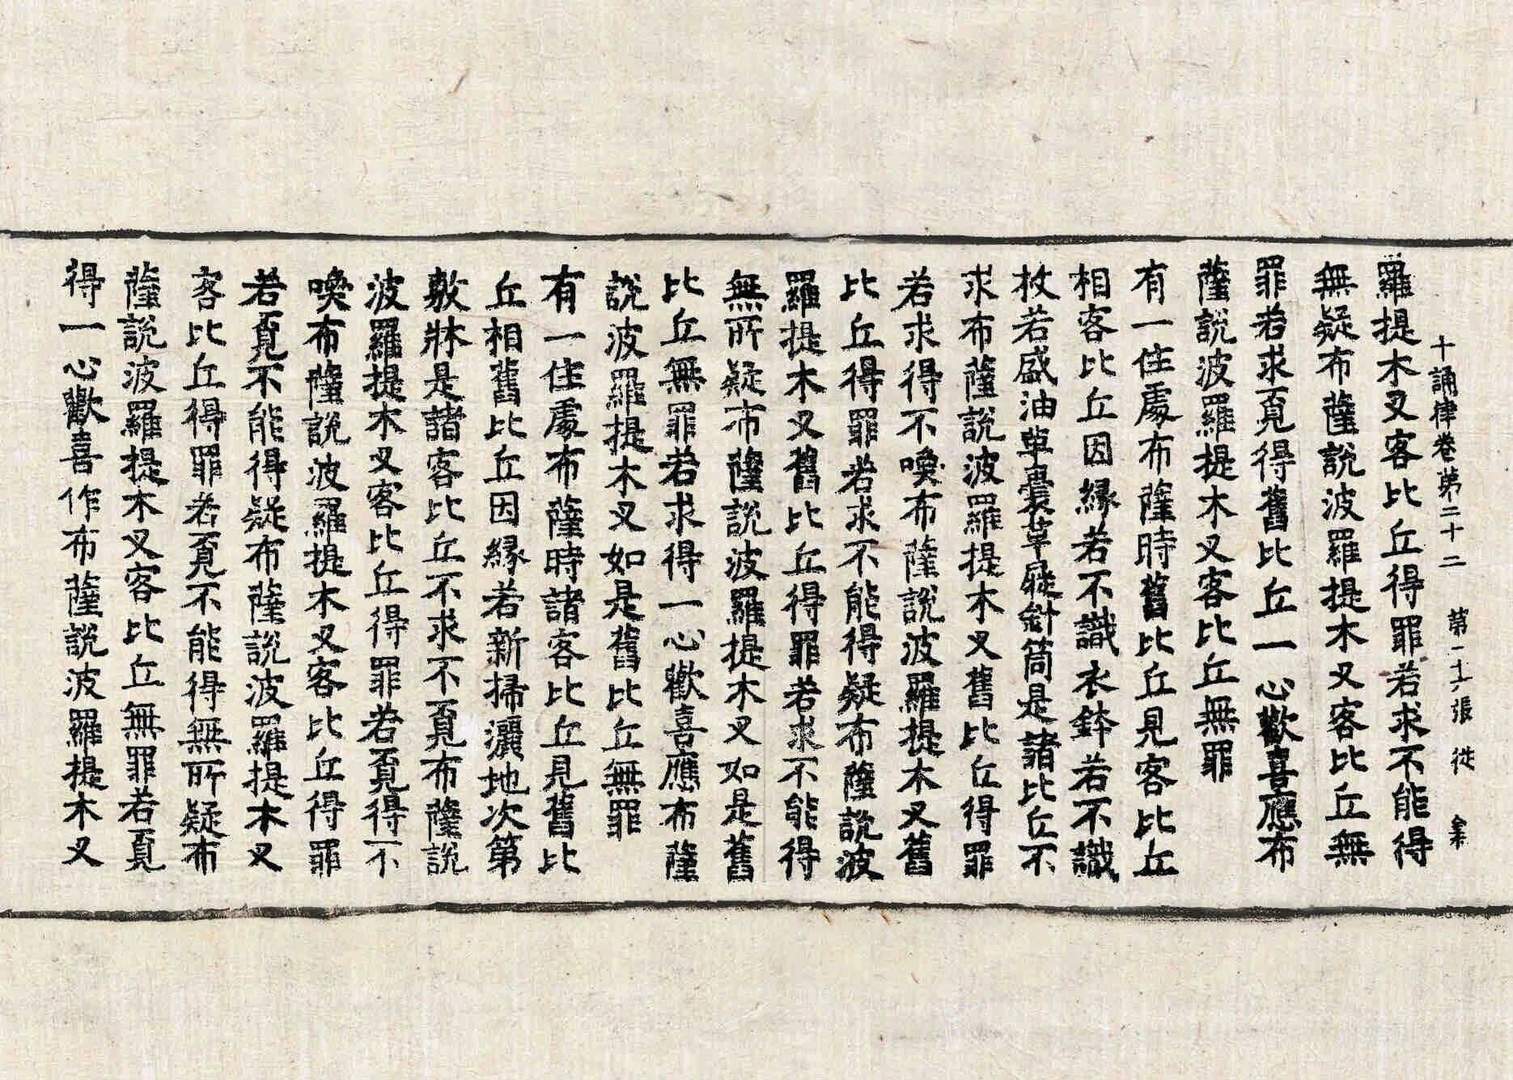 十誦律卷第二十二 第十六張 従
羅提木叉客比丘得罪若求不能得
無疑布薩說波羅提木叉客比丘無
罪若求覓得舊比丘一心歡喜應布
薩說波羅提木叉客比丘無罪
有一住處布薩時舊比丘見客比丘
相客比丘因緣若不識衣鉢若不識
杖若盛油革囊草屣針筒是諸比丘不
求布薩說波羅提木叉舊比丘得罪
若求得不喚布薩說波羅提木叉舊
比丘得罪若求不能得疑布薩說波
羅提木叉舊比丘得罪若求不能得
無所疑布薩說波羅提木叉如是舊
比丘無罪若求得一心歡喜應布薩
說波羅提木叉如是舊比丘無罪
有一住處布薩時諸客比丘見舊比
丘相舊比丘因緣若新掃灑地次第
敷牀是諸客比丘不求不覓布薩說
波羅提木叉客比丘得罪若覓得不
喚布薩說波羅提木叉客比丘得罪
若覓不能得疑布薩說波羅提木叉
客比丘得罪若覓不能得無所疑布
薩說波羅提木叉客比丘無罪若覓
得一心歡喜作布薩說波羅提木叉